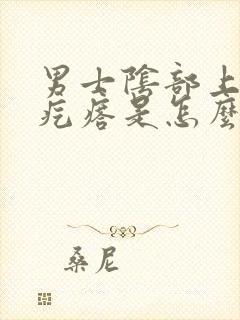 男士陰部上
疙瘩是怎麼
桑尼